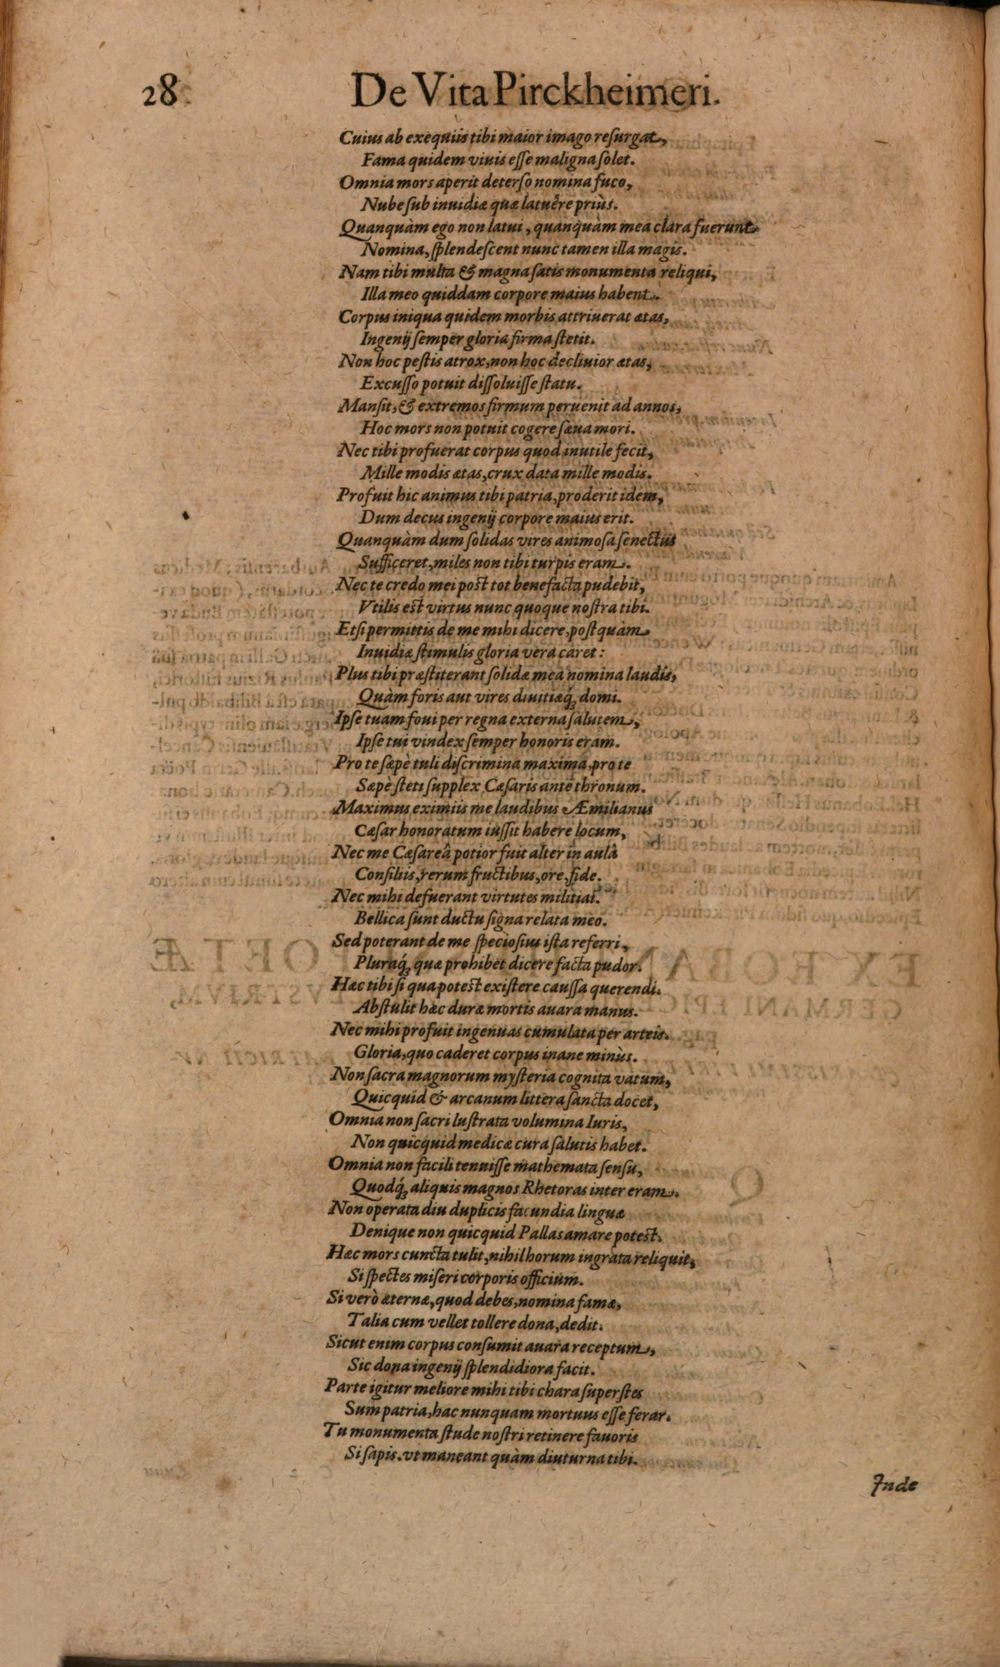 28 De Vita Pirckheimeri.
Cuius ab exequiis tibi maior imago reſurgat,
Fama quidem viuis eſſe maligna ſolet.
Omnia mors aperit deterſo nomina fuco,
Nube ſub inuidiæ quæ latuêre priùs.
Quanquàm ego non latui, quanquàm mea clara fuerunt
Nomina, ſplendeſcent nunc tamen illa magis.
Nam tibi multa & magna ſatis monumenta reliqui,
Illa meo quiddam corpore maius habent.
Corpus iniqua quidem morbis attriuerat ætas,
Ingenij ſemper gloria firma ſtetit.
Non hoc peſtis atrox, non hoc decliuior ætas,
Excuſſo potuit diſſoluiſſe ſtatu.
Manſit, & extremos firmum peruenit ad annos,
Hoc mors non potuit cogere ſæua mori.
Nec tibi profuerat corpus quod inutile fecit,
Mille modis ætas, crux data mille modis.
Profuit hic animus tibi patria, proderit idem,
Dum decus ingenij corpore maius erit.
Quanquàm dum ſolidas vires animoſa ſenectus
Sufficeret, miles non tibi turpis eram.
Nec te credo mei poſt tot benefacta pudebit,
Vtilis eſt virtus nunc quoque noſtra tibi.
Etſi permittis de me mihi dicere, poſtquàm
Inuidiæ ſtimulis gloria vera caret:
Plus tibi præſtiterant ſolidæ mea nomina laudis,
Quàm foris aut vires diuitiæq́; domi.
Ipſe tuam foui per regna externa ſalutem,
Ipſe tui vindex ſemper honoris eram.
Pro te ſæpè tuli diſcrimina maxima, pro te
Sæpè ſteti ſupplex Cæſaris antè thronum.
Maximus eximiis me laudibus Æmilianus
Cæſar honoratum iuſſit habere locum,
Nec me Cæſareâ potior fuit alter in aulâ
Conſiliis, rerum fructibus, ore, fide.
Nec mihi defuerant virtutes militiai.
Bellica ſunt ductu ſigna relata meo.
Sed poterant de me ſpecioſius iſta referri,
Pluraq́; quæ prohibet dicere facta pudor.
Hæc tibi ſi qua poteſt exiſtere cauſſa querendi.
Abſtulit hæc duræ mortis auara manus.
Nec mihi profuit ingenuas cumulata per arteis.
Gloria, quo caderet corpus inane minùs.
Non ſacra magnorum myſteria cognita vatum,
Quicquid & arcanum littera ſancta docet,
Omnia non ſacri luſtrata volumina Iuris,
Non quicquid medicæ cura ſalutis habet.
Omnia non facili tenuiſſe mathemata ſenſu,
Quodq́; aliquis magnos Rhetoras inter eram.
Non operata diu duplicis facundia linguæ
Denique non quicquid Pallas amare poteſt.
Hæc mors cuncta tulit, nihil horum ingrata reliquit,
Si ſpectes miſeri corporis officium.
Si verò æternæ, quod debes, nomina famæ,
Talia cum vellet tollere dona, dedit.
Sicut enim corpus conſumit auara receptum,
Sic dona ingenij ſplendidiora facit.
Parte igitur meliore mihi tibi chara ſuperſtes
Sum patria, hac nunquam mortuus eſſe ferar.
Tu monumenta ſtude noſtri retinere fauoris
Si ſapis. vt maneant quàm diuturna tibi.
Inde